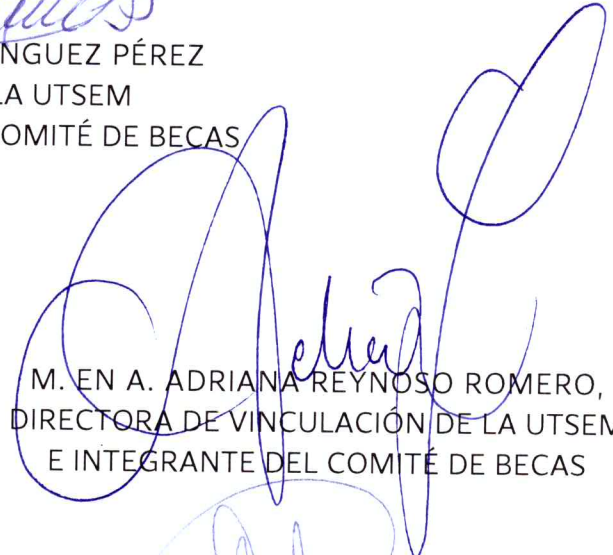 NGUEZ PÉREZ
LA UTSEM
OMITÉ DE BECAS
M. EN A. ADRIANA REYNOSO ROMERO,
DIRECTORA DE VINCULACIÓN DE LA UTSEM
E INTEGRANTE DEL COMITÉ DE BECAS